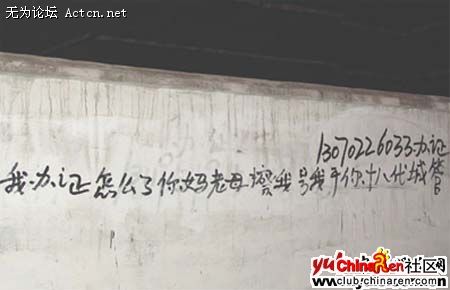 无为论坛
Actcn.net
13070226033办证
我办证怎么了你妈老母擦我号我干你十八代城管
ChinaRen社区
club.chinaren.com